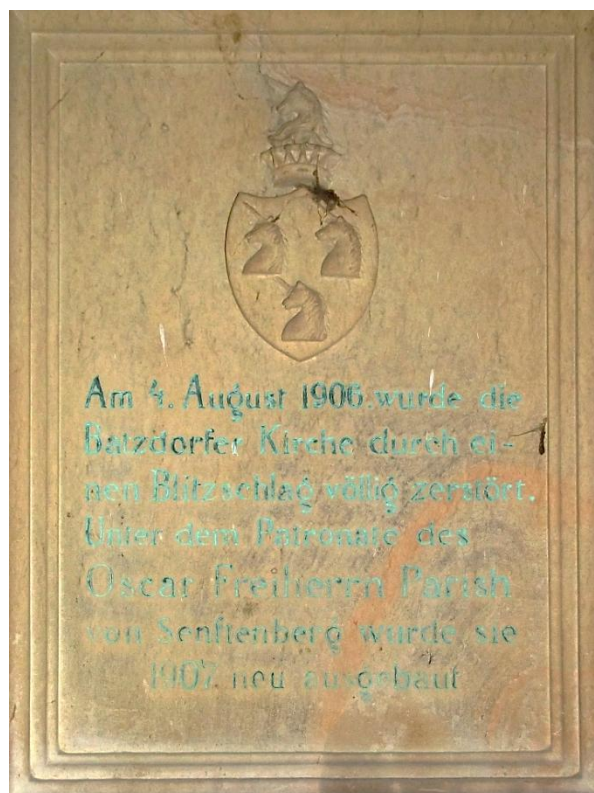 Am 4. August 1906. wurde die
Batzdorfer Kirche durch ei-
nen Blitzschlag völlig zerstört.
Unter dem Patronate des
Oscar Freiherrn Parish
von Senftenberg wurde sie
1907 neu ausgebaut